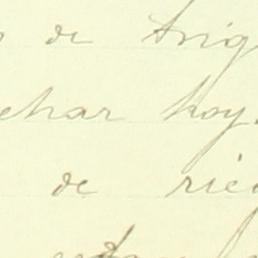 de trig
echar hoy
de rie